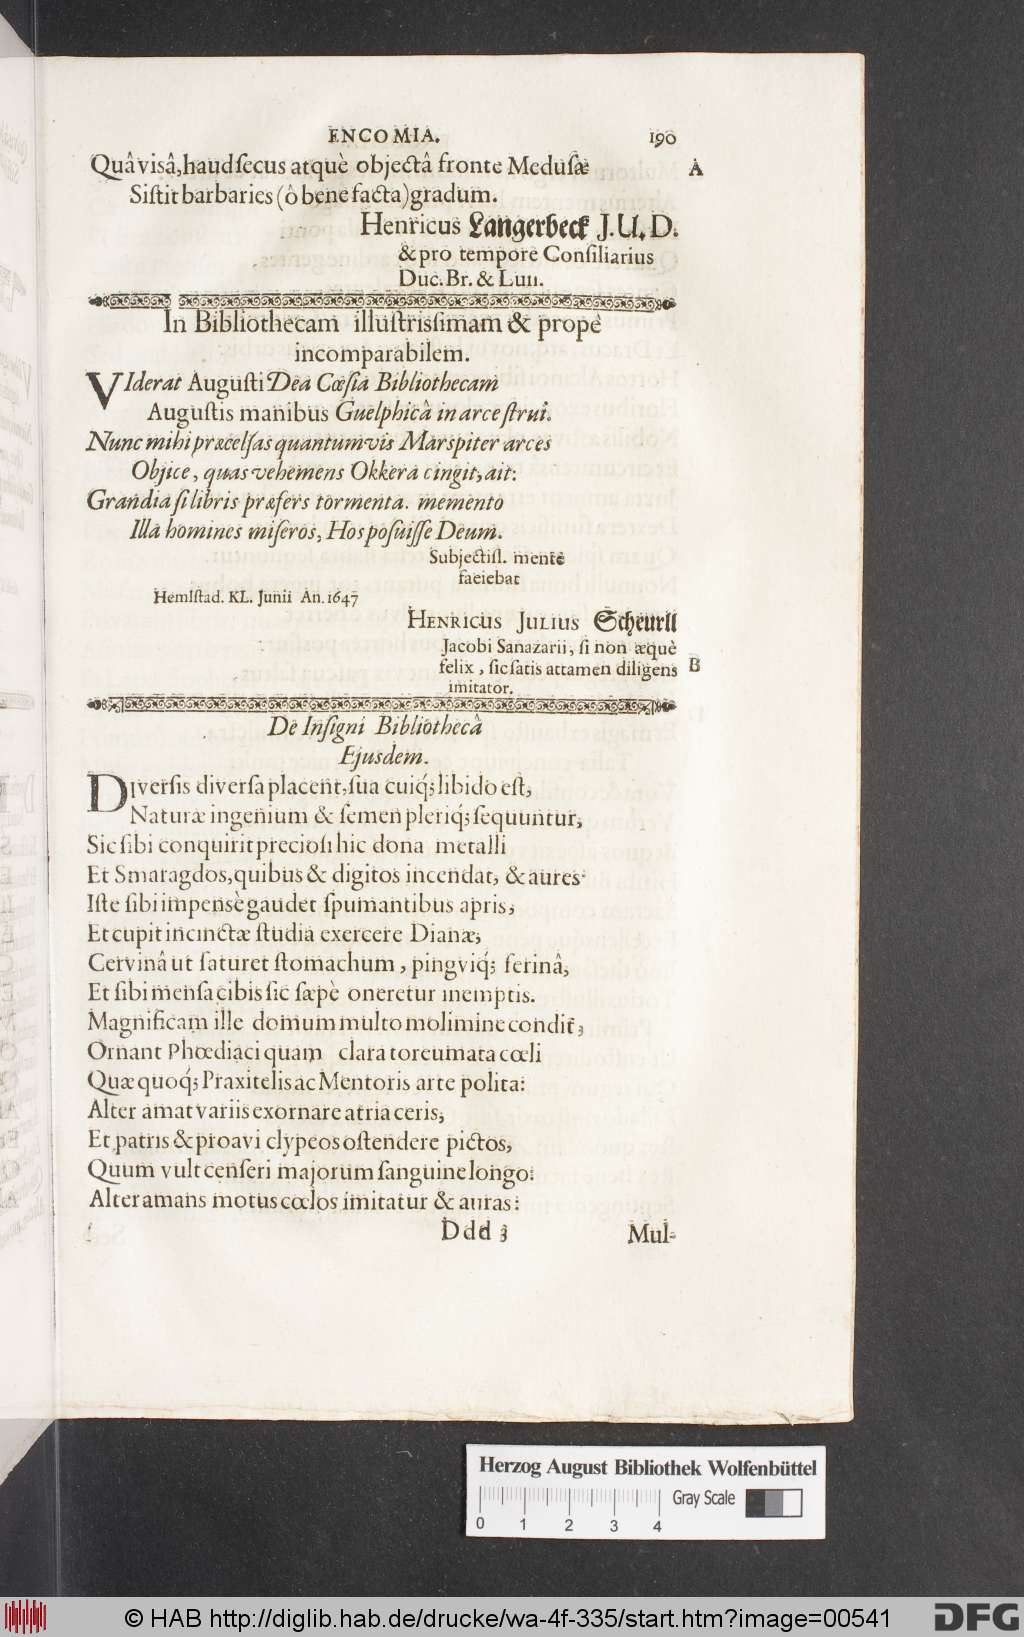 ENCOMIA. 190
Quâ visâ, haud secus atquè objectâ fronte Medusæ A
Sistit barbaries (ô bene facta) gradum.
Henricus Langerbeck J. U. D.
& pro tempore Consiliarius
Duc. Br. & Lun.
In Bibliothecam illustrissimam & propè
incomparabilem.
VIderat Augusti Dea Cæsia Bibliothecam
Augustis manibus Guelphicâ in arce strui.
Nunc mihi præcelsas quantumvis Marspiter arces
Objice, quas vehemens Okkera cingit, ait:
Grandia si libris præfers tormenta. memento
Illa homines miseros, Hos posuisse Deum.
Subjectiss. mente
faciebat
Hemlstad. KL. Junii An. 1647
HENRICUS JULIUS Scheurll
Jacobi Sanazarii, si non æquè
felix, sic satis attamen diligens B
imitator.
De Insigni Bibliothecâ
Ejusdem.
DIversis diversa placent, sua cuiq́; libido est,
Naturæ ingenium & semen pleriq́; sequuntur,
Sic sibi conquirit preciosi hic dona metalli
Et Smaragdos, quibus & digitos incendat, & aures:
Iste sibi impensè gaudet spumantibus apris,
Et cupit incinctæ studia exercere Dianæ,
Cervinâ ut saturet stomachum, pingviq́; ferinâ,
Et sibi mensa cibis sic sæpè oneretur inemptis.
Magnificam ille domum multo molimine condit,
Ornant Phœdiaci quam clara toreumata cœli
Quæ quoq́; Praxitelis ac Mentoris arte polita:
Alter amat variis exornare atria ceris,
Et patris & proavi clypeos ostendere pictos,
Quum vult censeri majorum sanguine longo:
Alter amans motus cœlos imitatur & auras:
Ddd 3 Mul-
Herzog August Bibliothek Wolfenbüttel
Gray Scale
0 1 2 3 4
© HAB http://diglib.hab.de/drucke/wa-4f-335/start.htm?image=00541
DFG